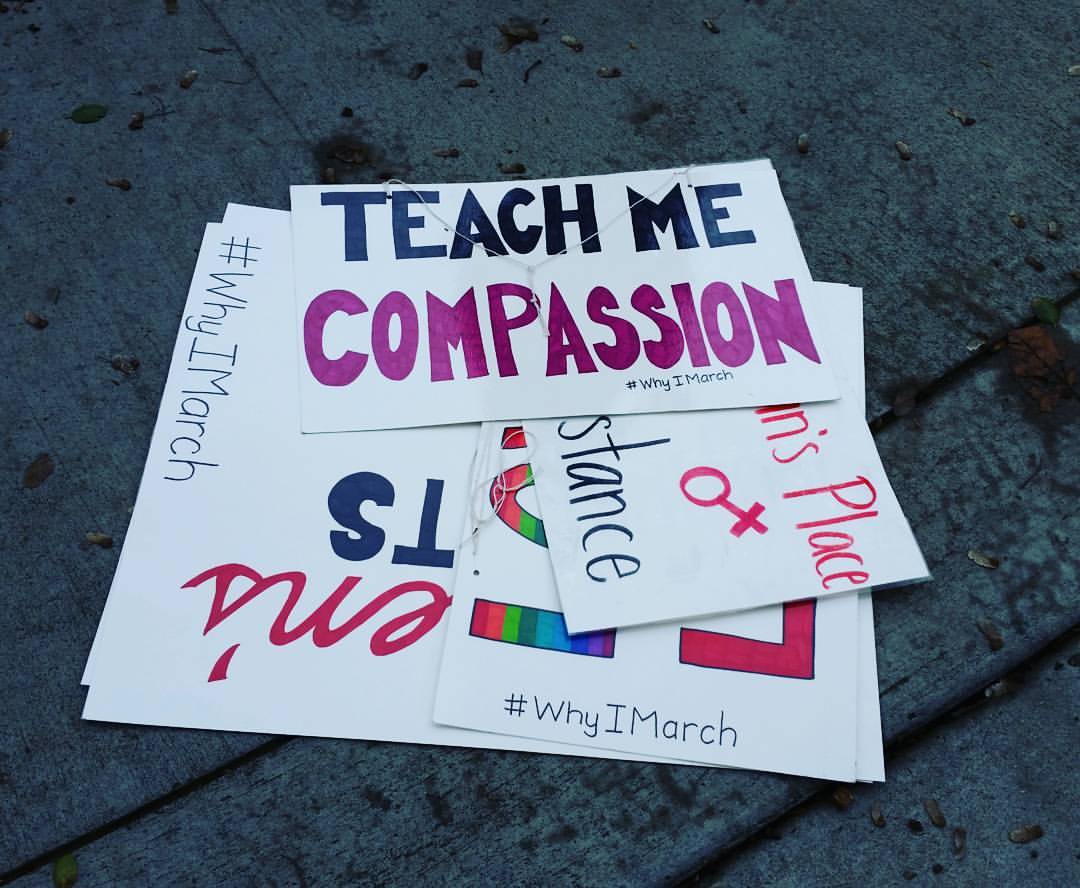 TEACH ME
COMPASSION
#WhyIMarch
#WhyIMarch
stance
an's Place
TS
en's
#WhyIMarch